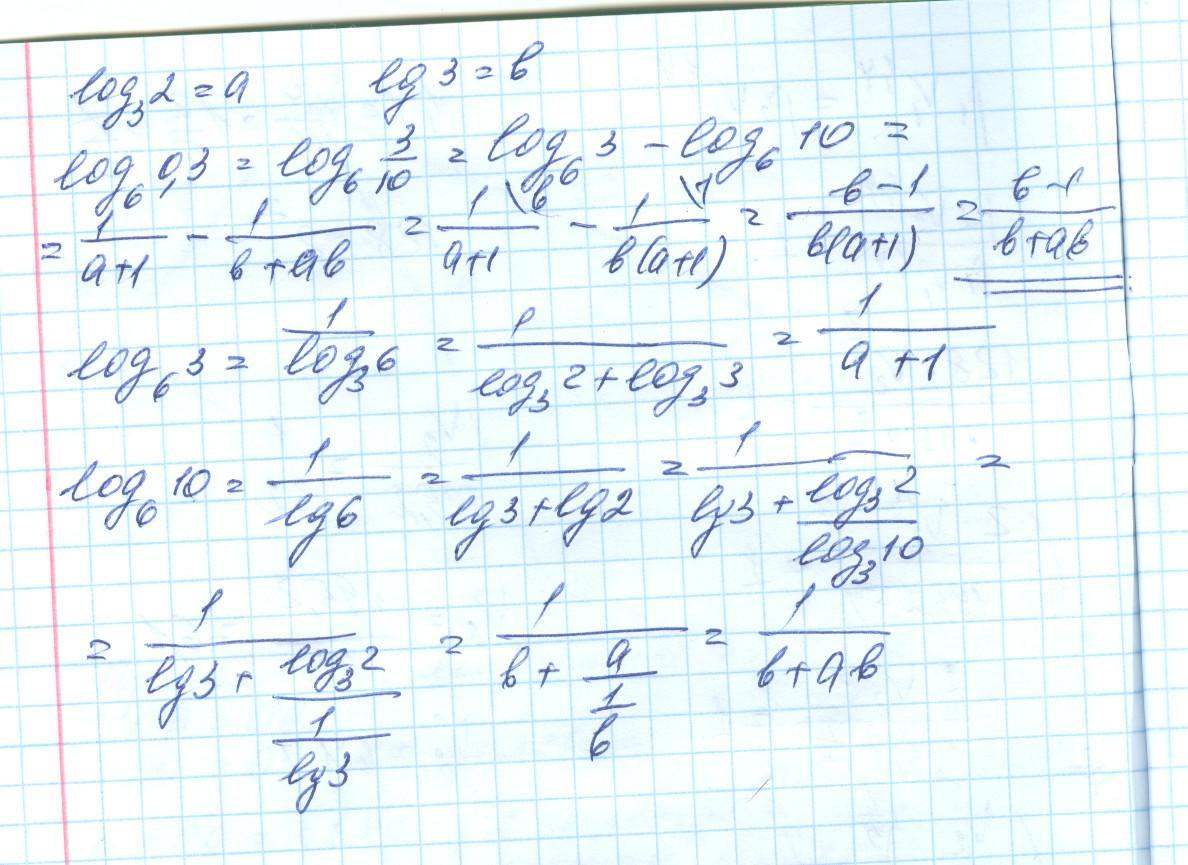 log₃2 = a lg3 = b
log₆0,3 = log₆ 3/10 = log₆3 − log₆10 =
= 1/(a+1) − 1/(b+ab) = 1\b/(a+1) − 1\1/(b(a+1)) = (b−1)/(b(a+1)) = (b−1)/(b+ab)
log₆3 = 1/(log₃6) = 1/(log₃2+log₃3) = 1/(a+1)
log₆10 = 1/(lg6) = 1/(lg3+lg2) = 1/(lg3 + (log₃2)/(log₃10)) =
= 1/(lg3 + (log₃2)/(1/(lg3))) = 1/(b + a/(1/b)) = 1/(b+ab)